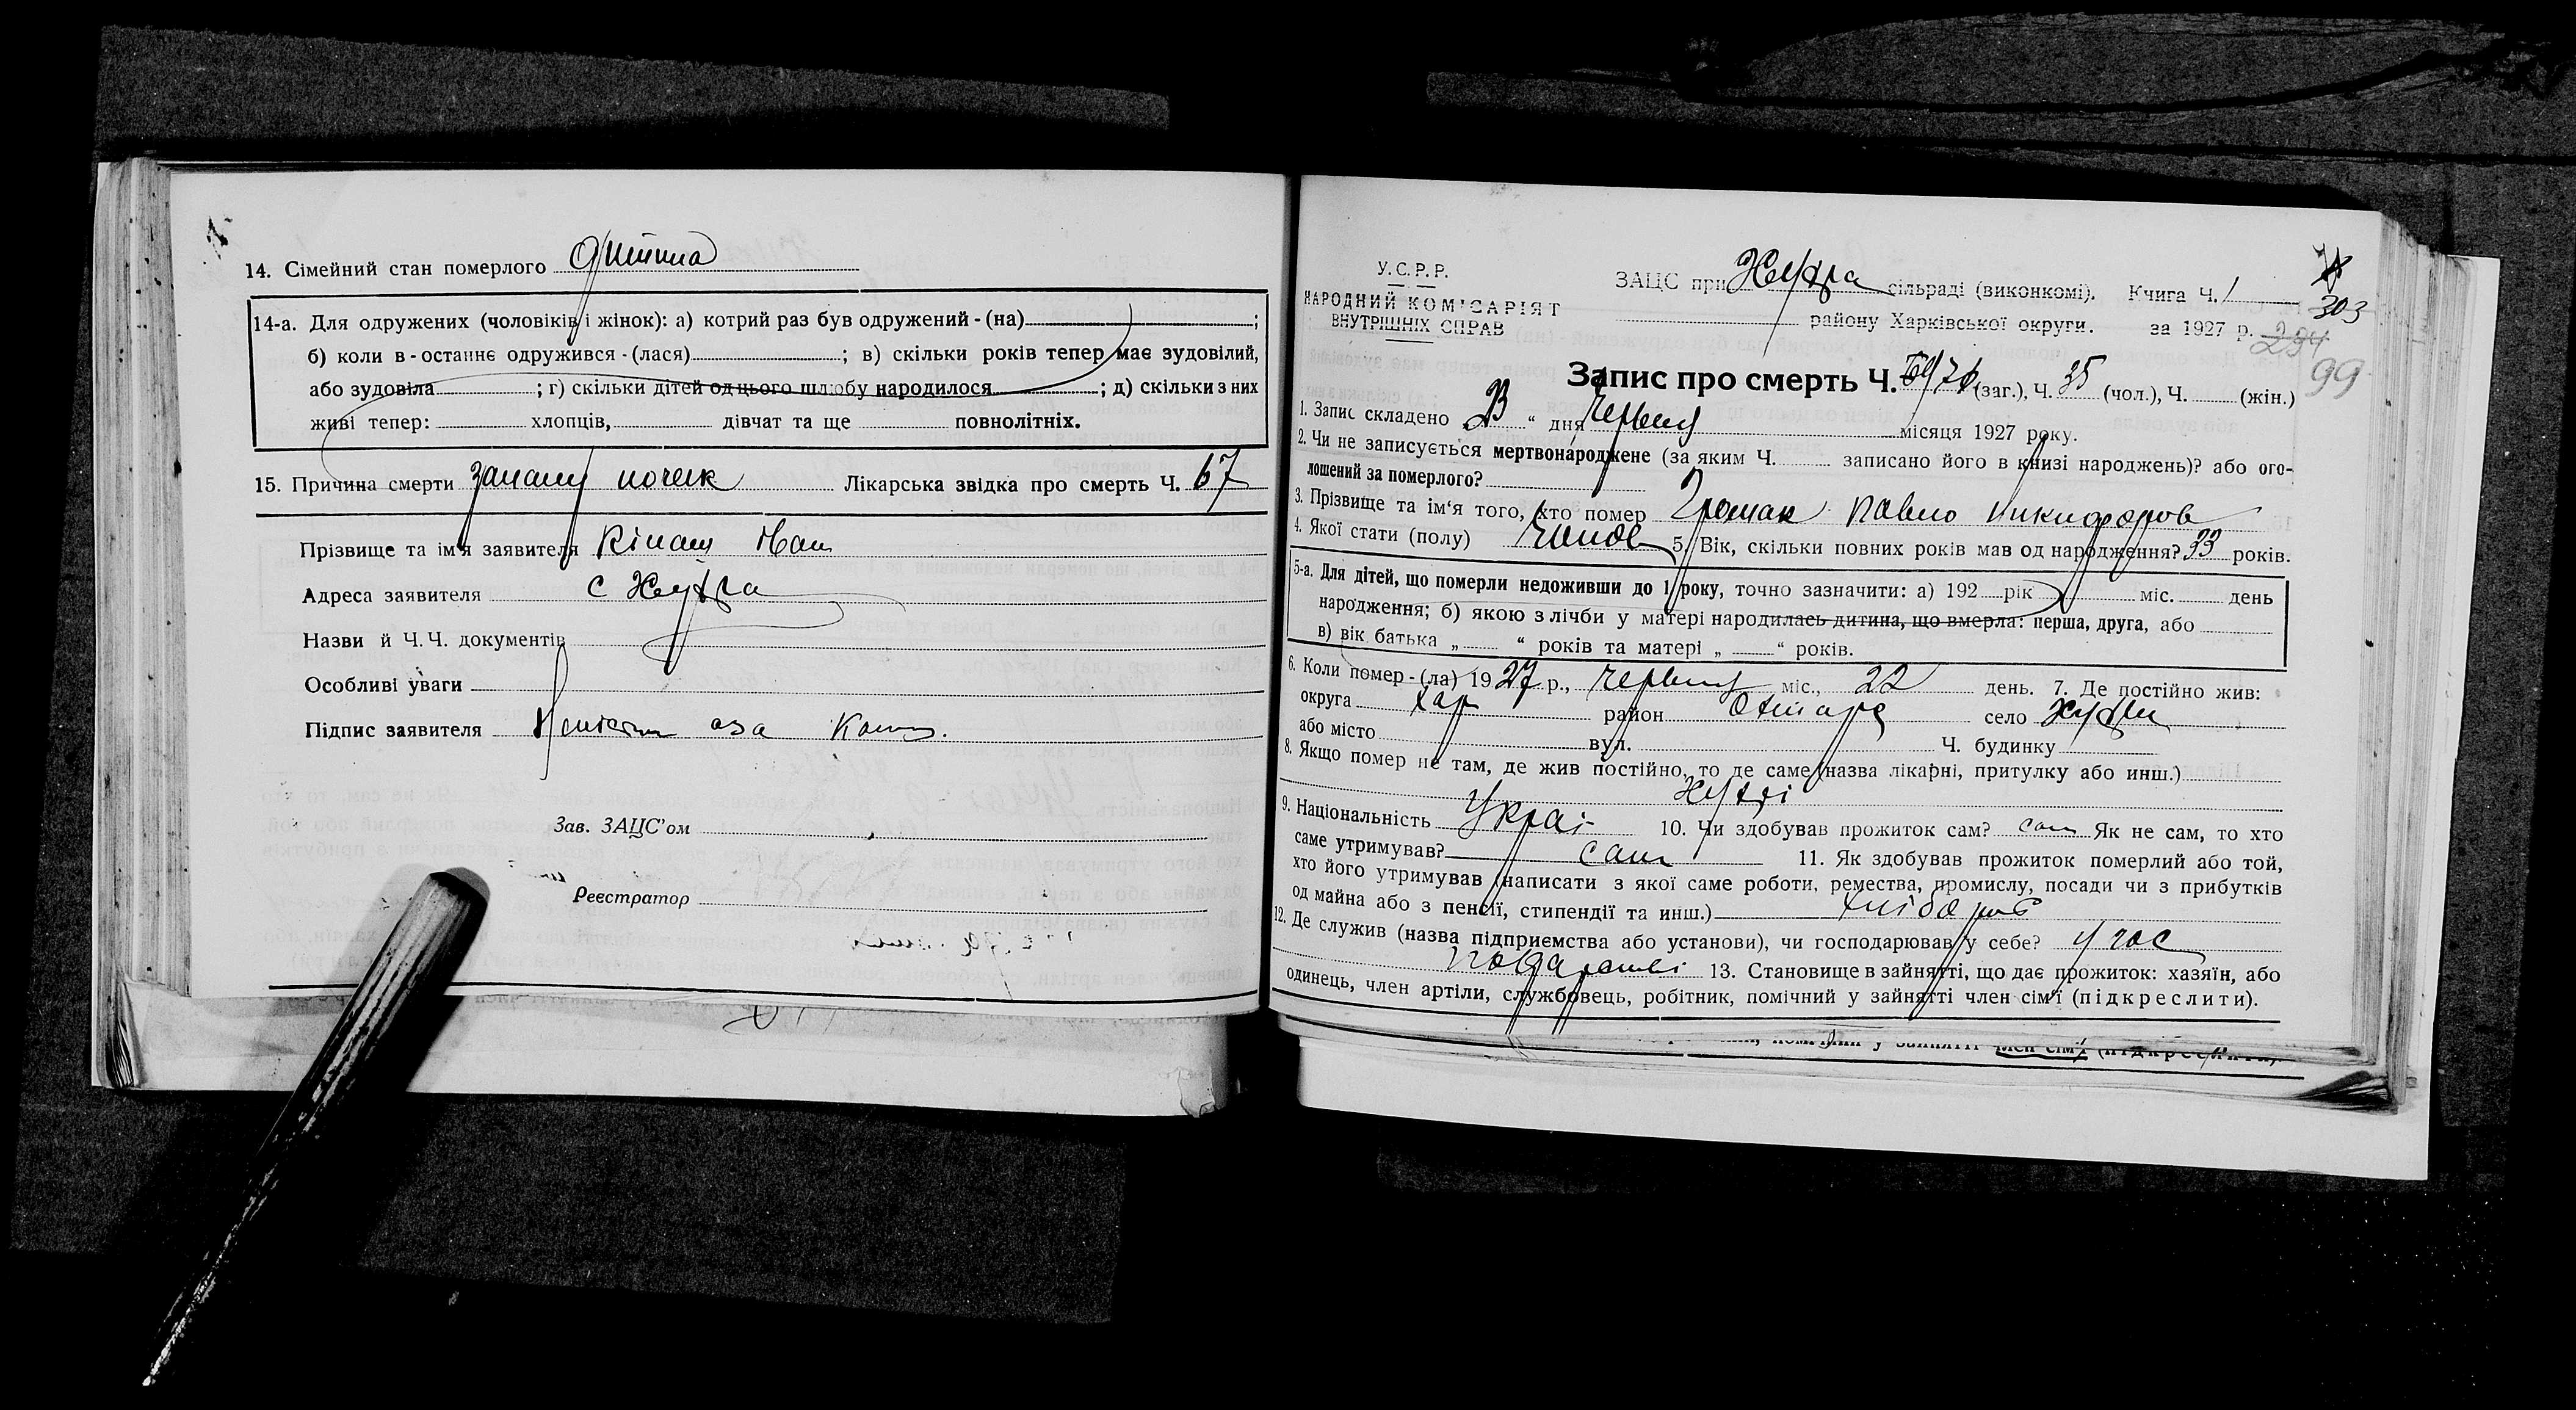 14. Сімейний стан померлого дитина
14-а. Для одружених (чоловіків і жінок): а) котрий раз був одружений - (на) ;
б) коли в - останнє одружився - (лася) ; в) скільки років тепер має зудовілий,
або зудовіла ; г) скільки дітей од цього шлюбу народилося ; д) скільки з них
живі тепер: хлопців, дівчат та ще повнолітніх.
15. Причина смерти почек Лікарська звідка про смерть Ч. 67
Прізвище та ім'я заявителя
Адреса заявителя с
Назви й Ч.Ч. документів
Особливі уваги
Підпис заявителя
Зав. ЗАЦС'ом
Реєстратор
У.С.Р.Р.
НАРОДНИЙ КОМІСАРІЯТ
ВНУТРІШНІХ СПРАВ
ЗАЦС при сільраді (виконкомі). Книга Ч. 1
303
району Харківської округи. за 1927 р.
294
99
Запис про смерть Ч. (заг.), Ч. 35 (чол.), Ч. (жін.)
1. Запис складено „ 23 “ дня червня місяця 1927 року.
2. Чи не записується мертвонароджене (за яким Ч. записано його в книзі народжень)? або ого-
лошений за померлого?
3. Прізвище та ім‘я того, хто помер Павло Никифоров
4. Якої стати (полу) 5. Вік, скільки повних років мав од народження? 33 років.
5-а. Для дітей, що померли недоживши до 1 року, точно зазначити: а) 192 рік міс. день
народження; б) якою з лічби у матері народилась дитина, що вмерла: перша, друга, або
в) вік батька „ “ років та матері „ “ років.
6. Коли помер - (ла) 1927 р., червня міс., 22 день. 7. Де постійно жив:
округа Хар район село
або місто вул. Ч. будинку
8. Якщо помер не там, де жив постійно, то де саме (назва лікарні, притулку або инш.)
9. Національність Украї 10. Чи здобував прожиток сам? сам Як не сам, то хто
саме утримував? сам 11. Як здобував прожиток померлий або той,
хто його утримував (написати з якої саме роботи, ремества, промислу, посади чи з прибутків
од майна або з пенсії, стипендії та инш.) хлібороб
12. Де служив (назва підприємства або установи), чи господарював у себе?
13. Становище в зайнятті, що дає прожиток: хазяїн, або
одинець, член артіли, службовець, робітник, помічний у зайнятті член сім'ї (підкреслити).